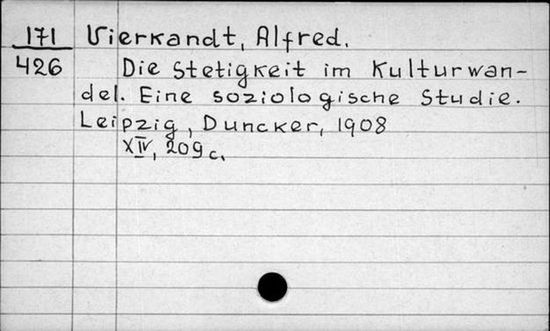 171 Vierkandt, Alfred.
426 Die Stetigkeit im Kulturwan-
del. Eine soziologische Studie.
Leipzig, Duncker, 1908
XIV, 209 c.